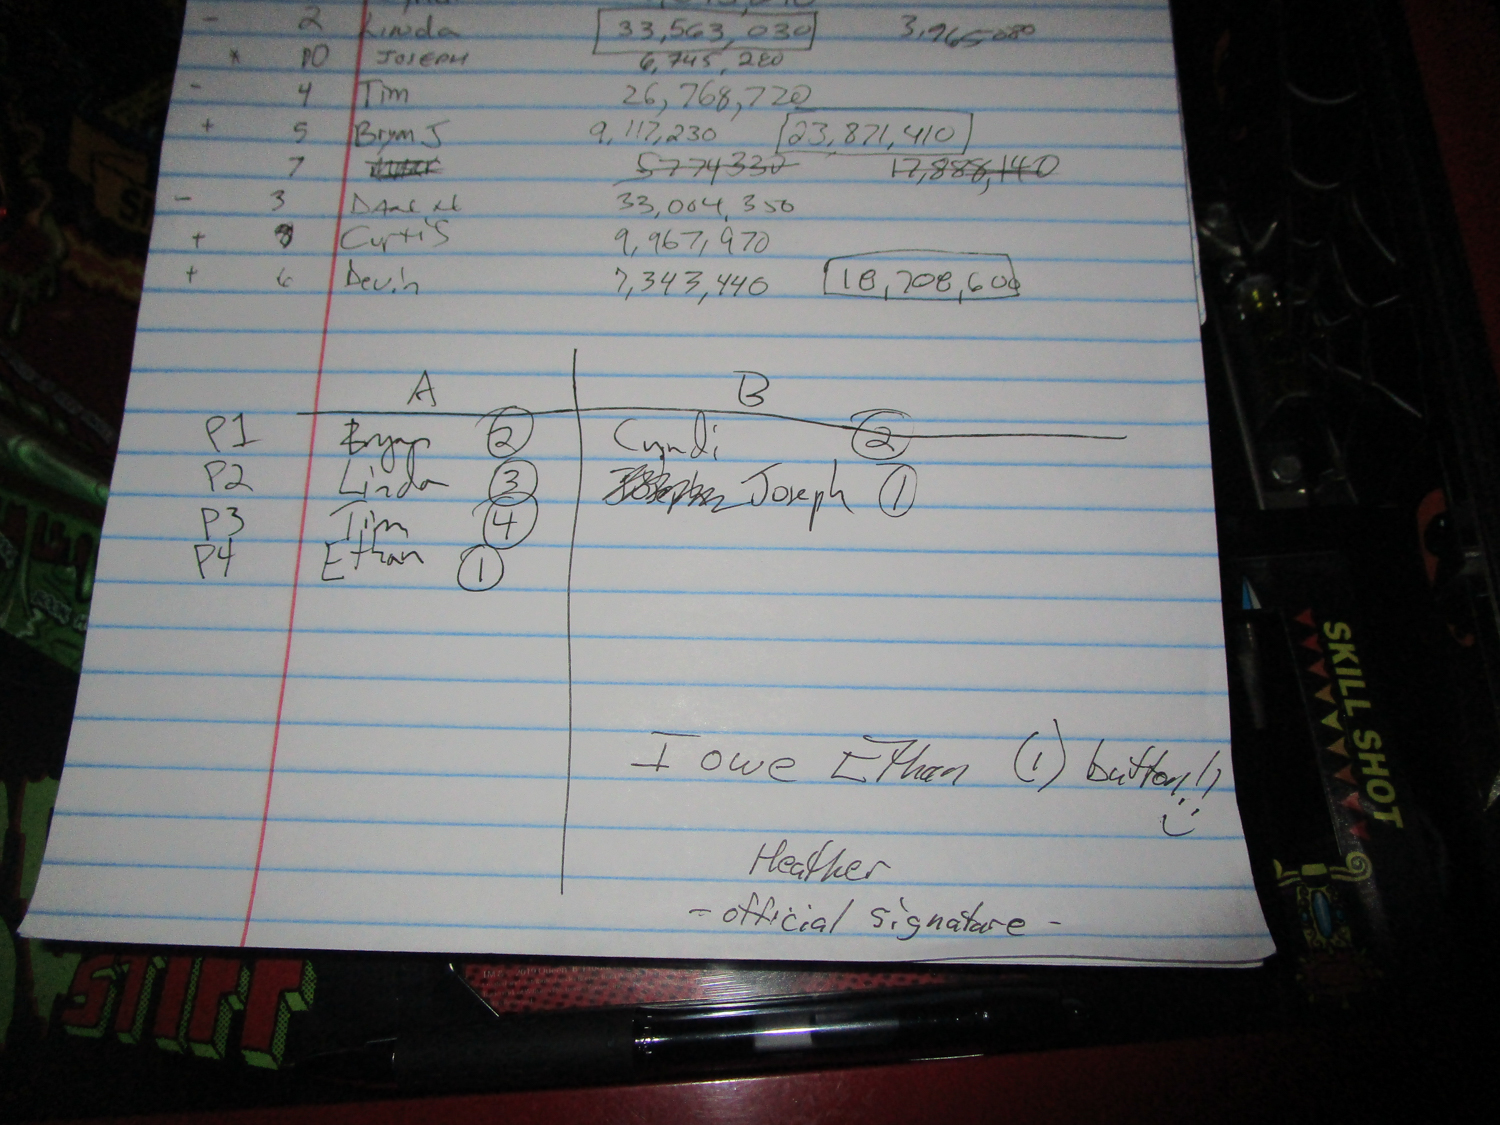 - 2 Linda 33,563,030 3,965,080
* 10 JOSEPH 6,745,280
- 4 Tim 26,768,720
+ 5 Bryan J 9,117,230 23,871,410
7 5774330 17,888,140
- 3 33,004,350
+ 8 Curtis 9,967,970
+ 6 Devin 7,343,440 18,708,600
A B
P1 Bryan 2 Cyndi 2
P2 Linda 3 Joseph 1
P3 Tim 4
P4 Ethan 1
I owe Ethan (1) button!!
Heather
- official signature -
SKILL SHOT